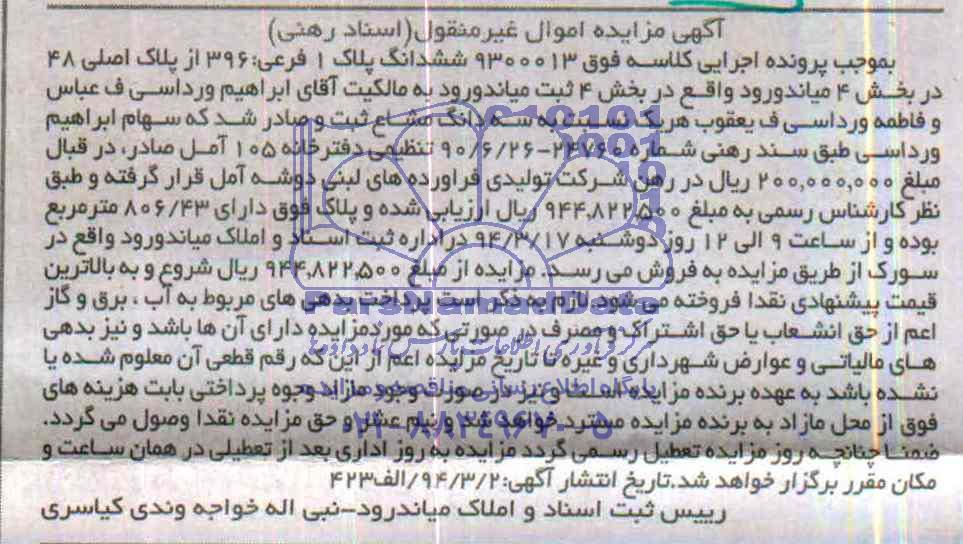 آگهی مزایده اموال غیرمنقول(اسناد رهنی)
بموجب پرونده اجرایی کلاسه فوق ۹۳۰۰۰۱۳ ششدانگ پلاک ۱ فرعی:۳۹۶ از پلاک اصلی ۴۸
در بخش ۴ میاندورود واقع در بخش ۴ ثبت میاندورود به مالکیت آقای ابراهیم ورداسی ف عباس
و فاطمه ورداسی ف یعقوب هریک نسبت به سه دانگ مشاع ثبت و صادر شد که سهام ابراهیم
ورداسی طبق سند رهنی شماره ۲۴۷۶۰-۹۰/۶/۲۶ تنظیمی دفترخانه ۱۰۵ آمل صادر، در قبال
مبلغ ۲۰۰,۰۰۰,۰۰۰ ریال در رهن شرکت تولیدی فراورده های لبنی دوشه آمل قرار گرفته و طبق
نظر کارشناس رسمی به مبلغ ۹۴۴,۸۲۲,۵۰۰ ریال ارزیابی شده و پلاک فوق دارای ۸۰۶/۴۳ مترمربع
بوده و از ساعت ۹ الی ۱۲ روز دوشنبه ۹۴/۳/۱۷ در اداره ثبت اسناد و املاک میاندورود واقع در
سورک از طریق مزایده به فروش می رسد. مزایده از مبلغ ۹۴۴,۸۲۲,۵۰۰ ریال شروع و به بالاترین
قیمت پیشنهادی نقدا فروخته می شود لازم به ذکر است پرداخت بدهی های مربوط به آب ، برق و گاز
اعم از حق انشعاب یا حق اشتراک و مصرف در صورتی که مورد مزایده دارای آن ها باشد و نیز بدهی
های مالیاتی و عوارض شهرداری و غیره تا تاریخ مزایده اعم از این که رقم قطعی آن معلوم شده یا
نشده باشد به عهده برنده مزایده است ضمن آنکه در صورت وجود مازاد وجوه پرداختی بابت هزینه های
فوق از محل مازاد به برنده مزایده مسترد خواهد شد و نیم عشر و حق مزایده نقدا وصول می گردد.
ضمنا چنانچه روز مزایده تعطیل رسمی گردد مزایده به روز اداری بعد از تعطیلی در همان ساعت و
مکان مقرر برگزار خواهد شد.تاریخ انتشار آگهی:۹۴/۳/۲/الف۴۲۳
رییس ثبت اسناد و املاک میاندرود-نبی اله خواجه وندی کیاسری
ParsNamadData
پایگاه اطلاع رسانی مناقصه و مزایده
۰۲۱-۸۸۳۴۹۶۷۰-۵